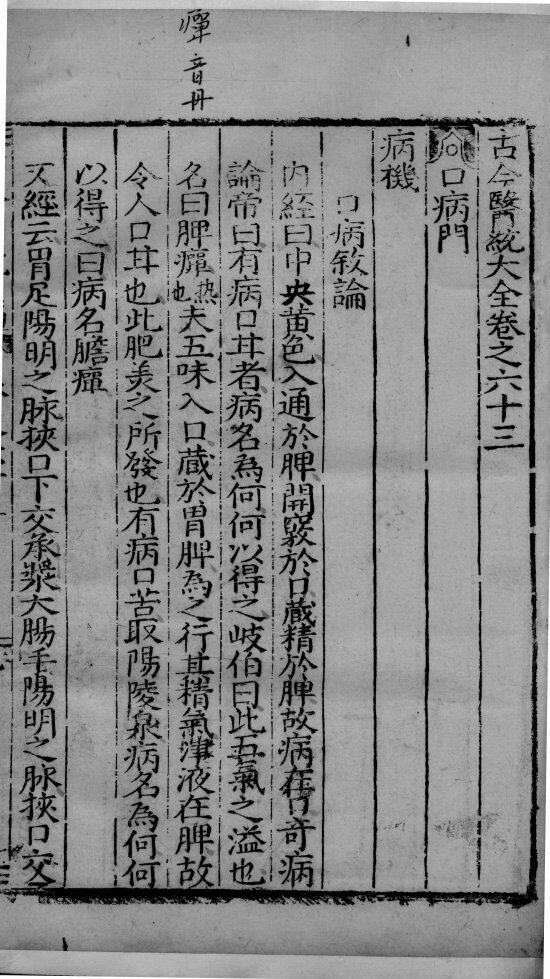 癉音丹
古今醫統大全卷之六十三
口病門
病機
口病敘論
內經曰中央黃色入通於脾開竅於口藏精於脾故病在口奇病
論帝曰有病口甘者病名為何何以得之岐伯曰此五氣之溢也
名曰脾癉热也夫五味入口藏於胃脾為之行其精氣津液在脾故
令人口甘也此肥美之所發也有病口苦取陽陵泉病名為何何
以得之曰病名膽癉
又經云胃足陽明之脉挾口下交承漿大腸手陽明之脉挾口交